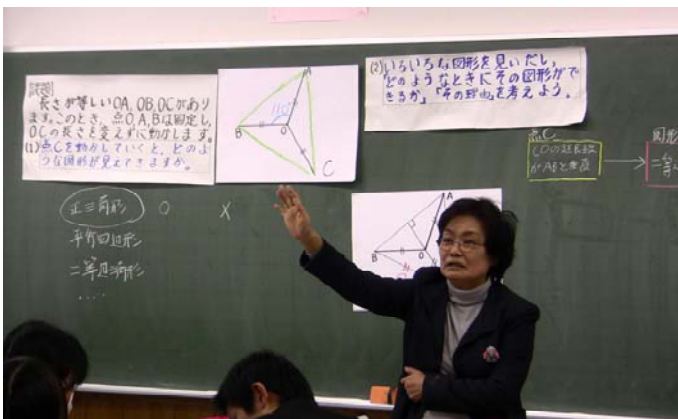 課題
長さが等しいOA, OB, OCがあり
ます。このとき、点O, A, Bは固定し、
OCの長さを変えずに動かします。
(1) 点Cを動かしていくと、どのよ
うな図形が見えてきますか。
A
110°
B
O
C
(2) いろいろな図形を見いだし、
どのようなときにその図形がで
きるか、「その理由」を考えよう。
点C
COの延長線
がABと垂直
図形
正三角形 O X
平行四辺形
二等辺三角形
....
A
B
O